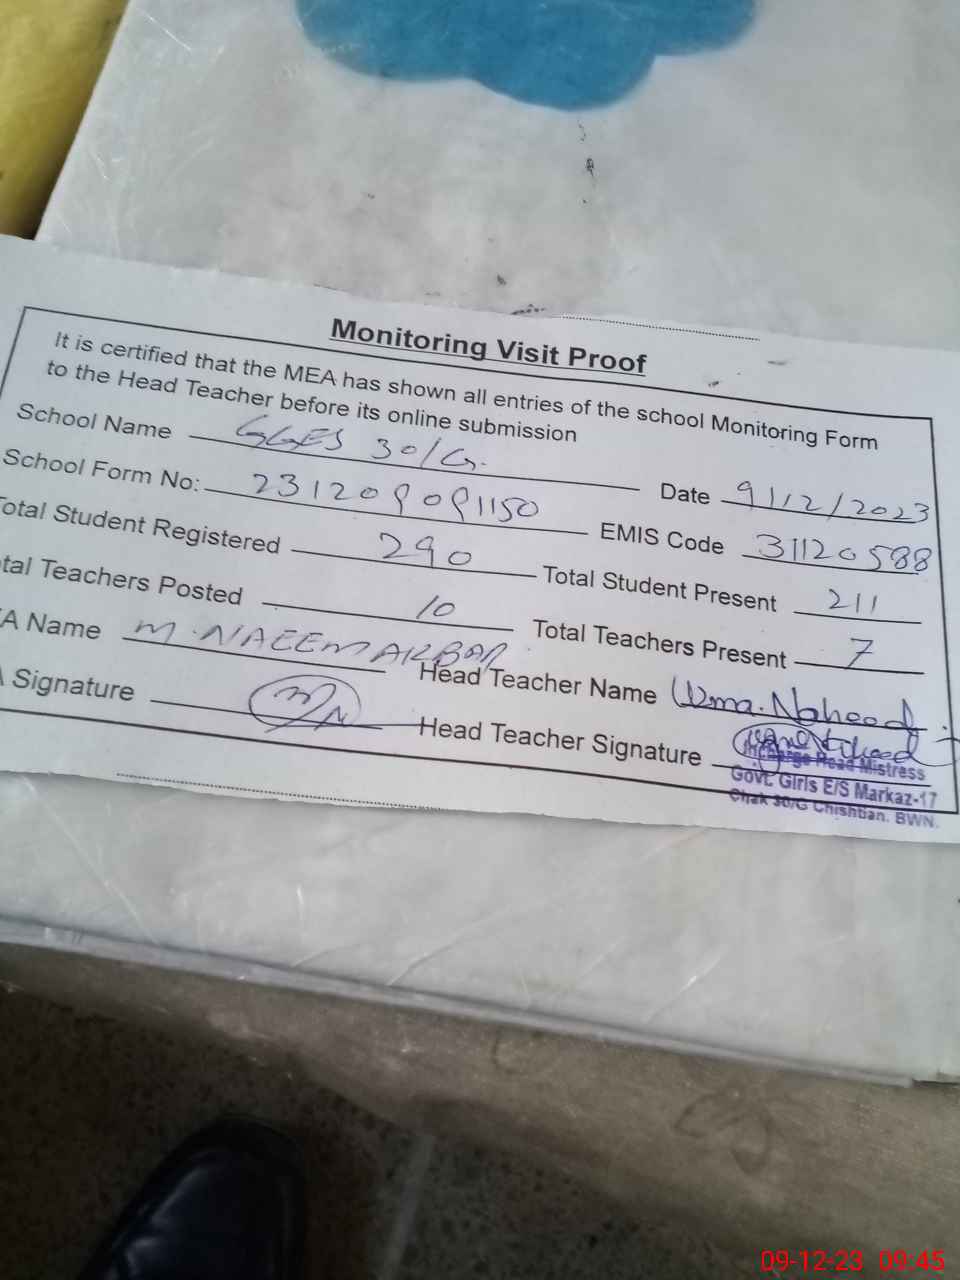 Monitoring Visit Proof
It is certified that the MEA has shown all entries of the school Monitoring Form
to the Head Teacher before its online submission
School Name GGES 30/G.
Date 9/12/2023
School Form No: 231209091150
EMIS Code 31120588
otal Student Registered 290
Total Student Present 211
tal Teachers Posted 10
Total Teachers Present 7
A Name M. NAEEM AKBAR
Head Teacher Name Uzma. Naheed
Signature MN
Head Teacher Signature Uzma Naheed
Incharge Head Mistress
Govt. Girls E/S Markaz-17
Chak 30/G Chishtian. BWN.
09-12-23 09:45